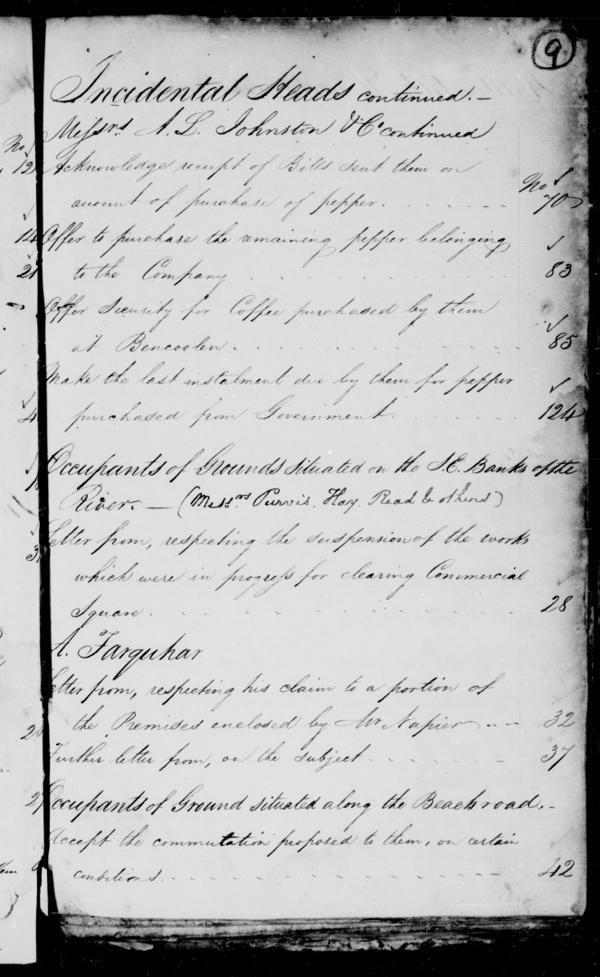 9
Incidental Heads continued.—
Messrs A. L. Johnston & Co continued
Acknowledge receipt of Bills sent them on
No
amount of purchase of pepper. 70
Offer to purchase the remaining pepper belonging
to the Company 83
Offer Security for Coffee purchased by them
at Bencoolen. 85
Make the last instalment due by them for pepper
purchased from Government. 124
Occupants of Grounds situated on the S.E. Banks of the
River. — (Messrs Purvis, Hay, Read & others)
Letter from, respecting the suspension of the works
which were in progress for clearing Commercial
Square. 28
A. Farquhar
Letter from, respecting his claim to a portion of
the Premises enclosed by Mr Napier 32
Further letter from, on the subject 37
Occupants of Ground situated along the Beach road.—
Accept the commutation proposed to them, on certain
conditions. 42